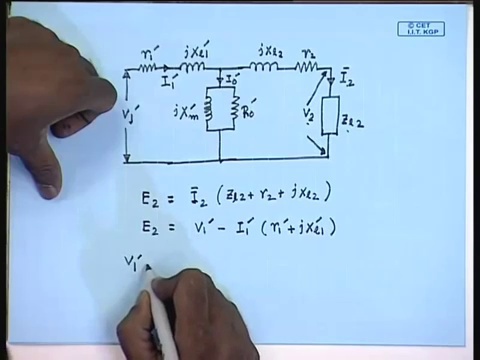 © CET
I.I.T. KGP
r₁′ jxₗ₁′ jxₗ₂ r₂
I₁′ I₀′ Ī₂
V₁′ jXₘ′ R₀′ V₂ Zₗ₂
E₂ = Ī₂ (Zₗ₂ + r₂ + jxₗ₂)
E₂ = V₁′ − I₁′ (r₁′ + jxₗ₁′)
V₁′